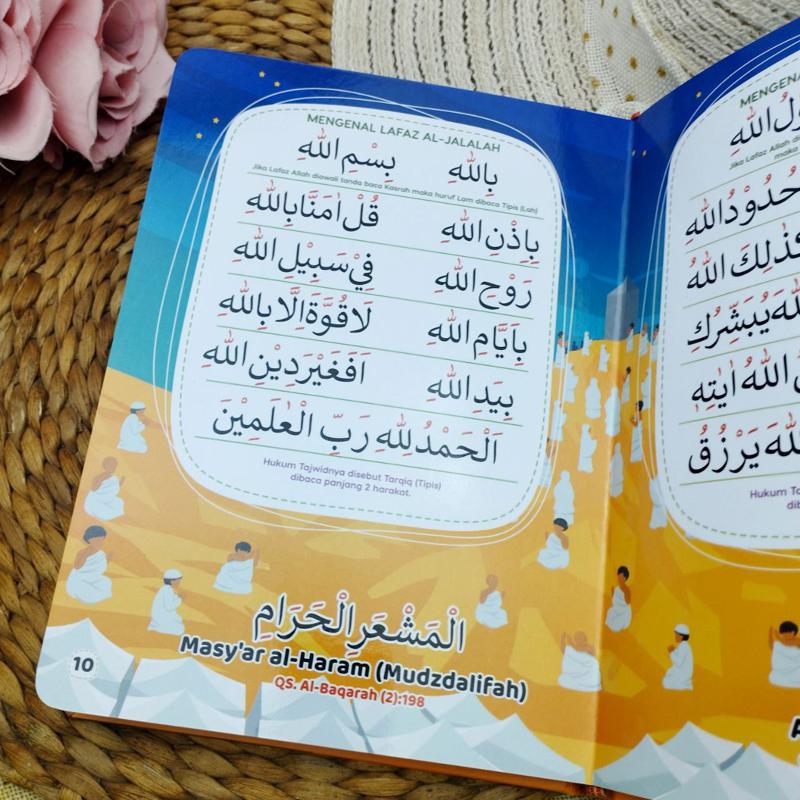 MENGENAL LAFAZ AL-JALALAH
بِاللهِ بِسْمِ اللهِ
Jika Lafaz Allah diawali tanda baca Kasrah maka huruf Lam dibaca Tipis (Lah)
بِاِذْنِ اللهِ قُلْ اٰمَنَّا بِاللهِ
رَوْحِ اللهِ فِيْ سَبِيْلِ اللهِ
بِاَيَّامِ اللهِ لَا قُوَّةَ اِلَّا بِاللهِ
بِيَدِ اللهِ اَفَغَيْرَ دِيْنِ اللهِ
اَلْحَمْدُ لِلّٰهِ رَبِّ الْعٰلَمِيْنَ
Hukum Tajwidnya disebut Tarqiq (Tipis)
dibaca panjang 2 harakat.
الْمَشْعَرِ الْحَرَامِ
Masy'ar al-Haram (Mudzdalifah)
QS. Al-Baqarah (2):198
10
اللهِ
حُدُوْدُ اللهِ
كَذٰلِكَ اللهُ
يُبَشِّرُكِ
اللهُ اٰيٰتِهٖ
يَرْزُقُ
Hukum